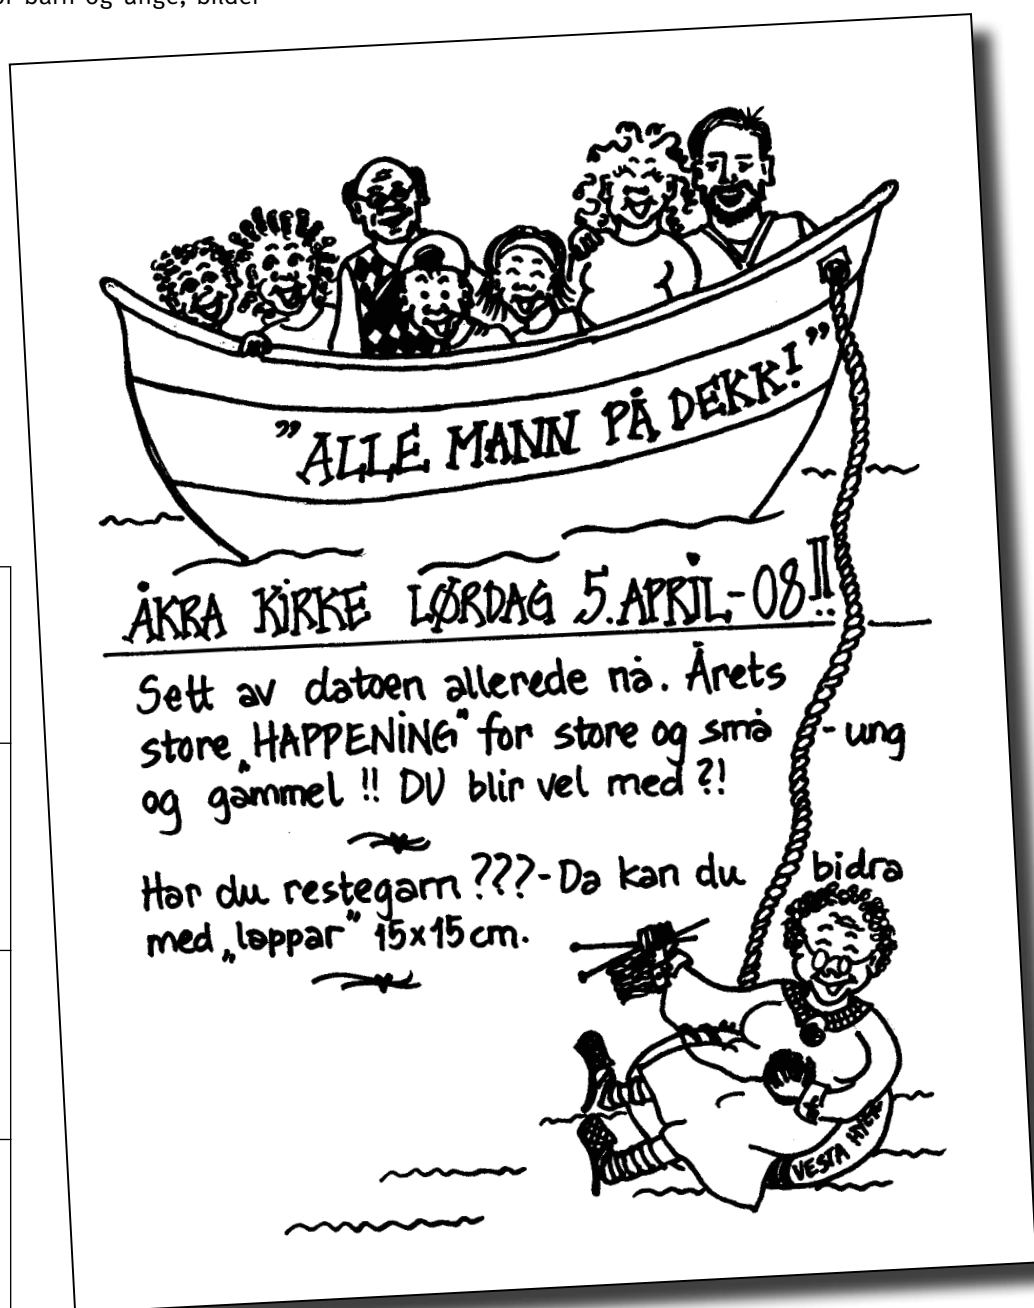 barn og unge, bilder
"ALLE MANN PÅ DEKK!"
ÅKRA KIRKE LØRDAG 5. APRIL-08!!
Sett av datoen allerede nå. Årets
store „HAPPENING" for store og små - ung
og gammel !! DU blir vel med ?!
Har du restegarn ???-Da kan du bidra
med „lappar" 15x15 cm.
VESTA